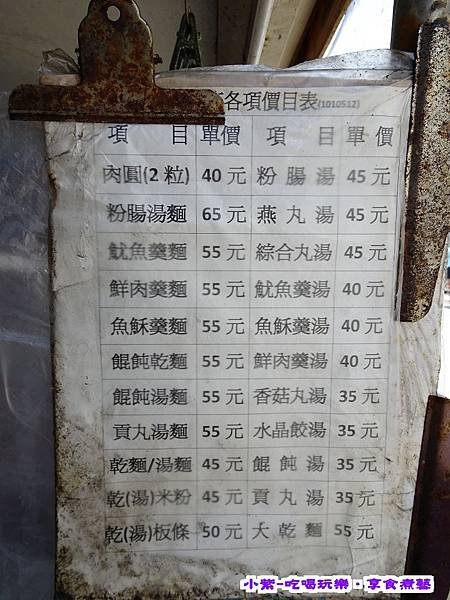 各項價目表(1010512)
項 目 單價 項 目 單 價
肉圓(2 粒) 40 元 粉 腸 湯 45 元
粉腸湯麵 65 元 燕 丸 湯 45 元
魷魚羹麵 55 元 綜合丸湯 45 元
鮮肉羹麵 55 元 魷魚羹湯 40 元
魚酥羹麵 55 元 魚酥羹湯 40 元
餛飩乾麵 55 元 鮮肉羹湯 40 元
餛飩湯麵 55 元 香菇丸湯 35 元
貢丸湯麵 55 元 水晶餃湯 35 元
乾麵/湯麵 45 元 餛 飩 湯 35 元
乾(湯)米粉 45 元 貢 丸 湯 35 元
乾(湯)板條 50 元 大 乾 麵 55 元
小紫-吃喝玩樂‧享食煮藝